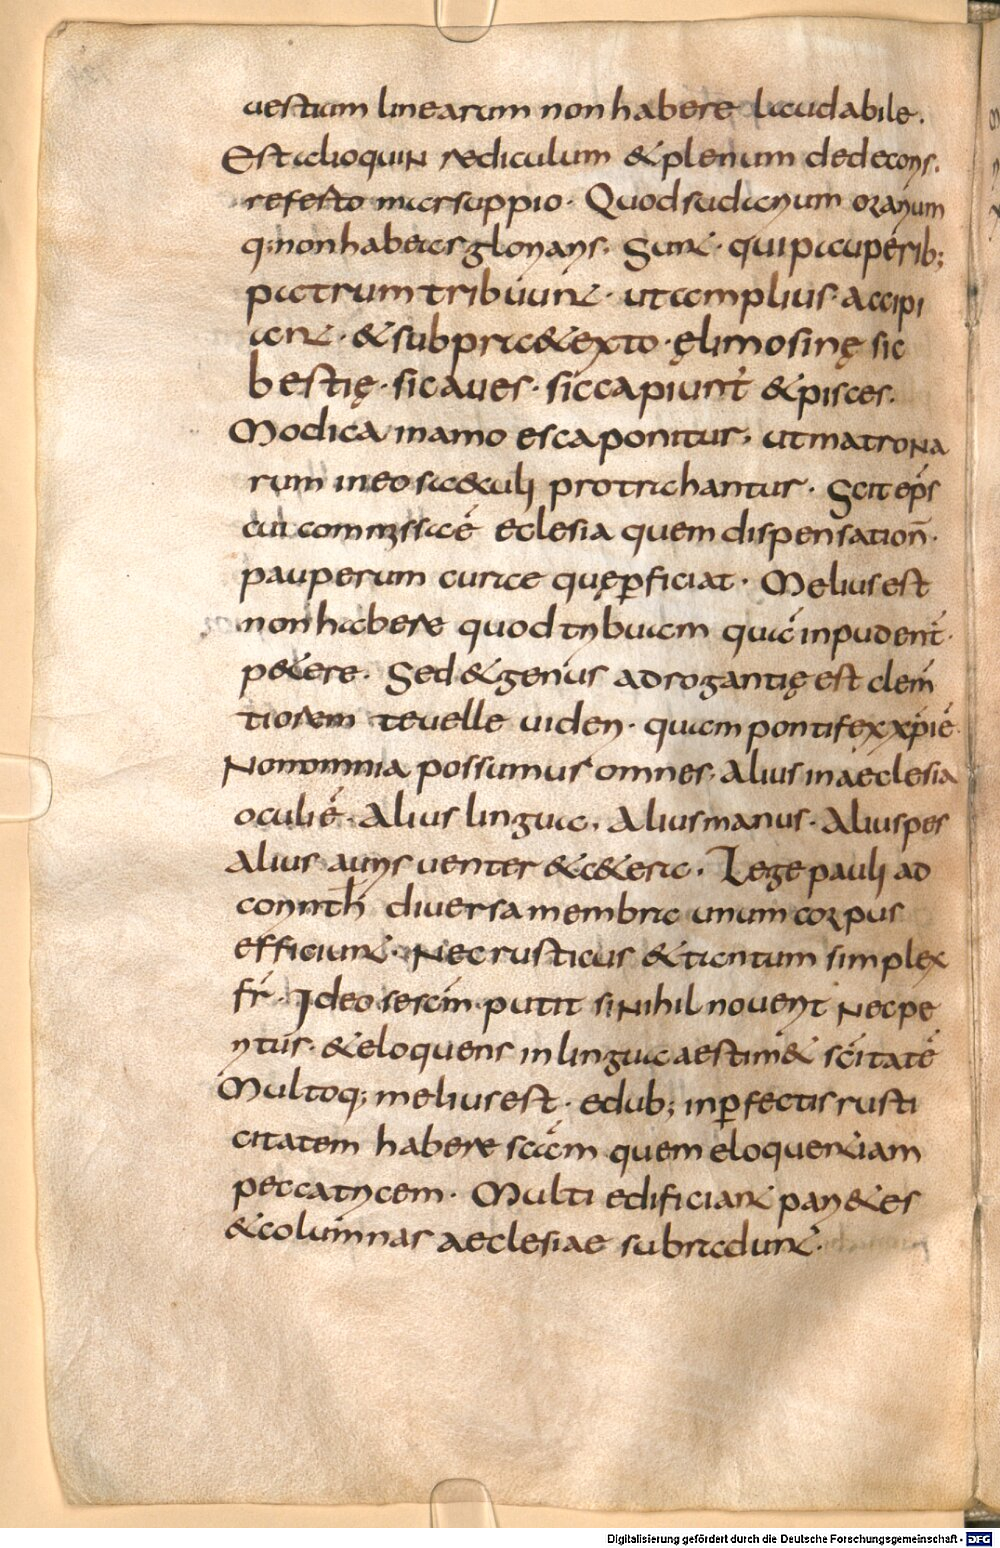 uestium linearum non habere laudabile.
Est alioquin rediculum & plenum dedecoris.
referto marsuppio. Quod sudarium orarium
q; non habeas glorians. Sunt. qui pauperib;
pactrum tribuunt. ut amplius. accipi
ant. & sub praetexto. ęlimosinę sic
bestię. sic aues. sic capiunt & pisces.
Modica in amo esca ponitur. ut matrona
rum in eo sacculi protrichantur. Scit ep̄s
cui commissa ē eclesia quem dispensation̄.
pauperum curae quę ꝑficiat. Melius est
non habere quod tribuam quā inpudent̄.
petere. Sed & genus adrogantię est clem̄
tiorem te uelle uideri. quam pontifex xp̄i ē.
Non omnia possumus omnes. Alius in aeclesia
oculi ē. Alius lingua. Alius manus. Alius pes
Alius auris uenter & cetera. Lege pauli ad
corinth̄ diuersa membra unum corpus
efficiunt. Nec rusticus & tantum simplex
fr̄. Ideo se scm̄ putit si nihil nouerit Nec pe
ritus. & eloquens in lingua aestimet sc̄itatē
Multoq; melius est. e dub; inꝑfectis rusti
citatem habere scam̄ quem eloquentiam
peccatricem. Multi edificiant parietes
& columnas aeclesiae subradunt.
Digitalisierung gefördert durch die Deutsche Forschungsgemeinschaft - DFG